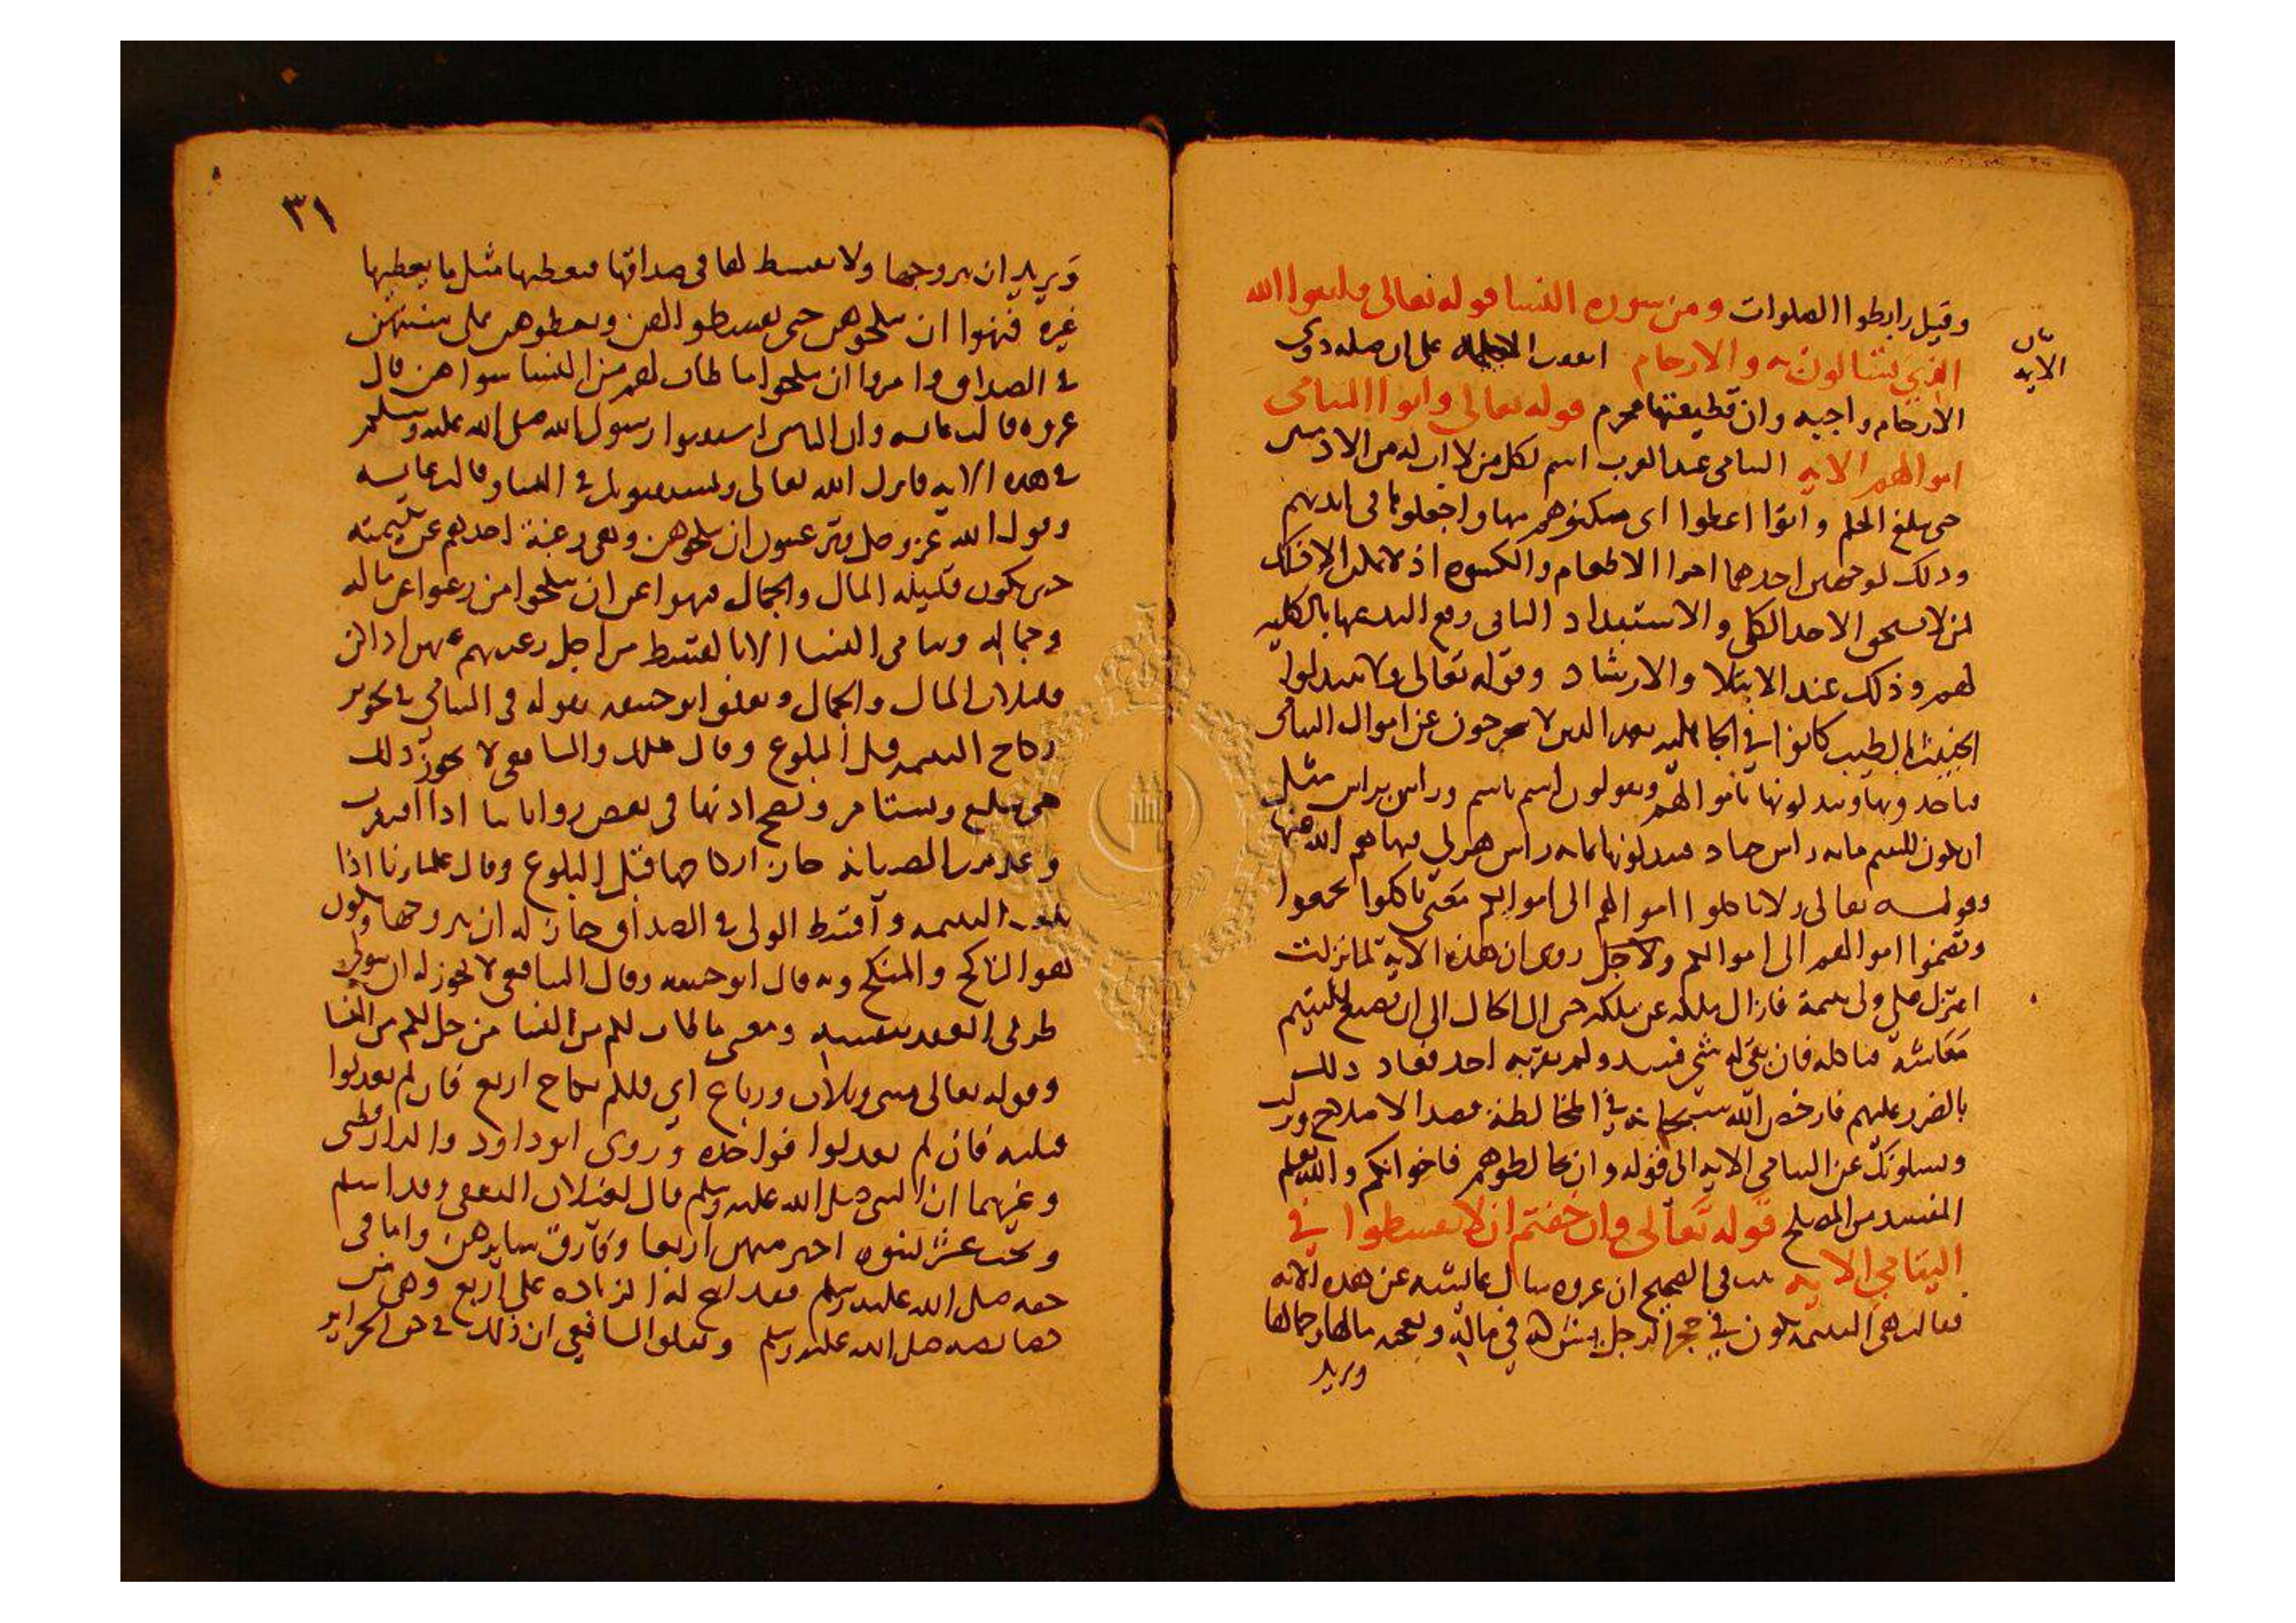 وقيل رابطوا الصلوات ومن سوره النسا قوله تعالى واتقوا الله
الذي تسالون به والارحام اتفقت المله على ان صله ذوي
الارحام واجبه وان قطيعتها محرم قوله تعالى واتوا اليتامى
اموالهم الايه اليتامى عند العرب اسم لكل من لا اب له من الادميين
حتى يبلغ الحلم واتوا اعطوا اي مكنوهم منها واجعلوها في ايديهم
وذلك لوجهين احدهما اجرا الاطعام والكسوه اذ لا ملك الا
لمن لا يستحق الاخذ الكلي والاستبداد الثاني رفع اليد عنها بالكليه
لهم وذلك عند الابتلا والارشاد وقوله تعالى ولا تتبدلوا
الخبيث بالطيب كانوا في الجاهليه لعدم الدين لا يتحرجون عن اموال اليتامى
فياخذونها ويبدلونها باموالهم ويقولون اسم باسم وراس براس مثل
ان يكون لليتيم مايه راس جياد فيبدلونها بمايه راس هزلي فنهاهم الله عنها
وقولـــه تعالى ولا تاكلوا اموالهم الى اموالكم معنى تاكلوا تجمعوا
وتضموا اموالهم الى اموالكم ولاجل روى ان هذه الاية لما نزلت
اعتزل كل ولي يتيمة فازال ملكه عن ملكه حتى ال الحال الى ان يصنع لليتيم
معاشه فياكله فان بقي له شي فسد ولم يقربه احد فعاد ذلك
بالضرر عليهم فارخص الله سبحانه في المخالطة قصدا الاصلاح ونزلت
ويسلونك عن اليتامى الايه الى قوله وان تخالطوهم فاخوانكم والله يعلم
المفسد من المصلح قوله تعالى وان خفتم ان لا تقسطوا في
اليتامى الايه ثبت في الصحيح ان عروه سال عايشه عن هذه الايه
فقالت هي اليتيمه تكون في حجر الرجل تشركه في ماله ويعجبه مالها وجمالها
ويريد
الايه
٣١
ويريد ان يتزوجها ولا يقسط لها في صداقها فيعطيها مثل ما يعطيها
غيره فنهوا ان ينكحوهن حتى يقسطوا لهن ويعطوهن على سنتهن
في الصداق وامروا ان ينكحوا ما طاب لهم من النسا سواهن قال
عروه قالت عايشه وان الناس استفتوا رسول الله صلى الله عليه وسلم
في هذه الايه فانزل الله تعالى ويستفتونك في النسا وقالت عايشه
وقول الله عز وجل وترغبون ان تنكحوهن وهي رغبة احدكم عن يتيمته
حين تكون قليله المال والجمال فنهوا عن ان ينكحوا من رغبوا عن ماله
وجماله ويتامى النسا الا بالقسط من اجل رغبتهم عنهن اذا كن
قليلات المال والجمال وتعلق ابو حنيفه بقوله في اليتامى في تجويز
نكاح اليتيمه قبل البلوغ وقال ملك والشافعي لا يجوز ذلك
حتى تبلغ وتستامر وتصح اذنها في بعض رواياتنا اذا افتقرت
وعدمت الصيانه جاز انكاحها قبل البلوغ وقال علماونا اذا
بلغت اليتيمه واقسط الولي في الصداق جاز له ان يتزوجها ويكون
هو الناكح والمنكح وبه قال ابو حنيفه وقال الشافعي لا يجوز له ان يتولى
طرفي العقد بنفسه ومعنى ما طاب لكم من النسا من حل لكم من النسا
وقوله تعالى مثنى وثلاث ورباع اي فلكم نكاح اربع فان لم تعدلوا
فثلثه فان لم تعدلوا فواحده وروى ابو داود والدارقطني
وغيرهما ان النبي صلى الله عليه وسلم قال لغيلان الثقفي وقد اسلم
وتحته عشر نسوه اختر منهن اربعا وفارق سايرهن واما في
حقه صلى الله عليه وسلم فقد ابيح له الزياده على اربع وهي من
خصايصه صلى الله عليه وسلم وتعلق الشافعي ان ذلك في حق الحراير